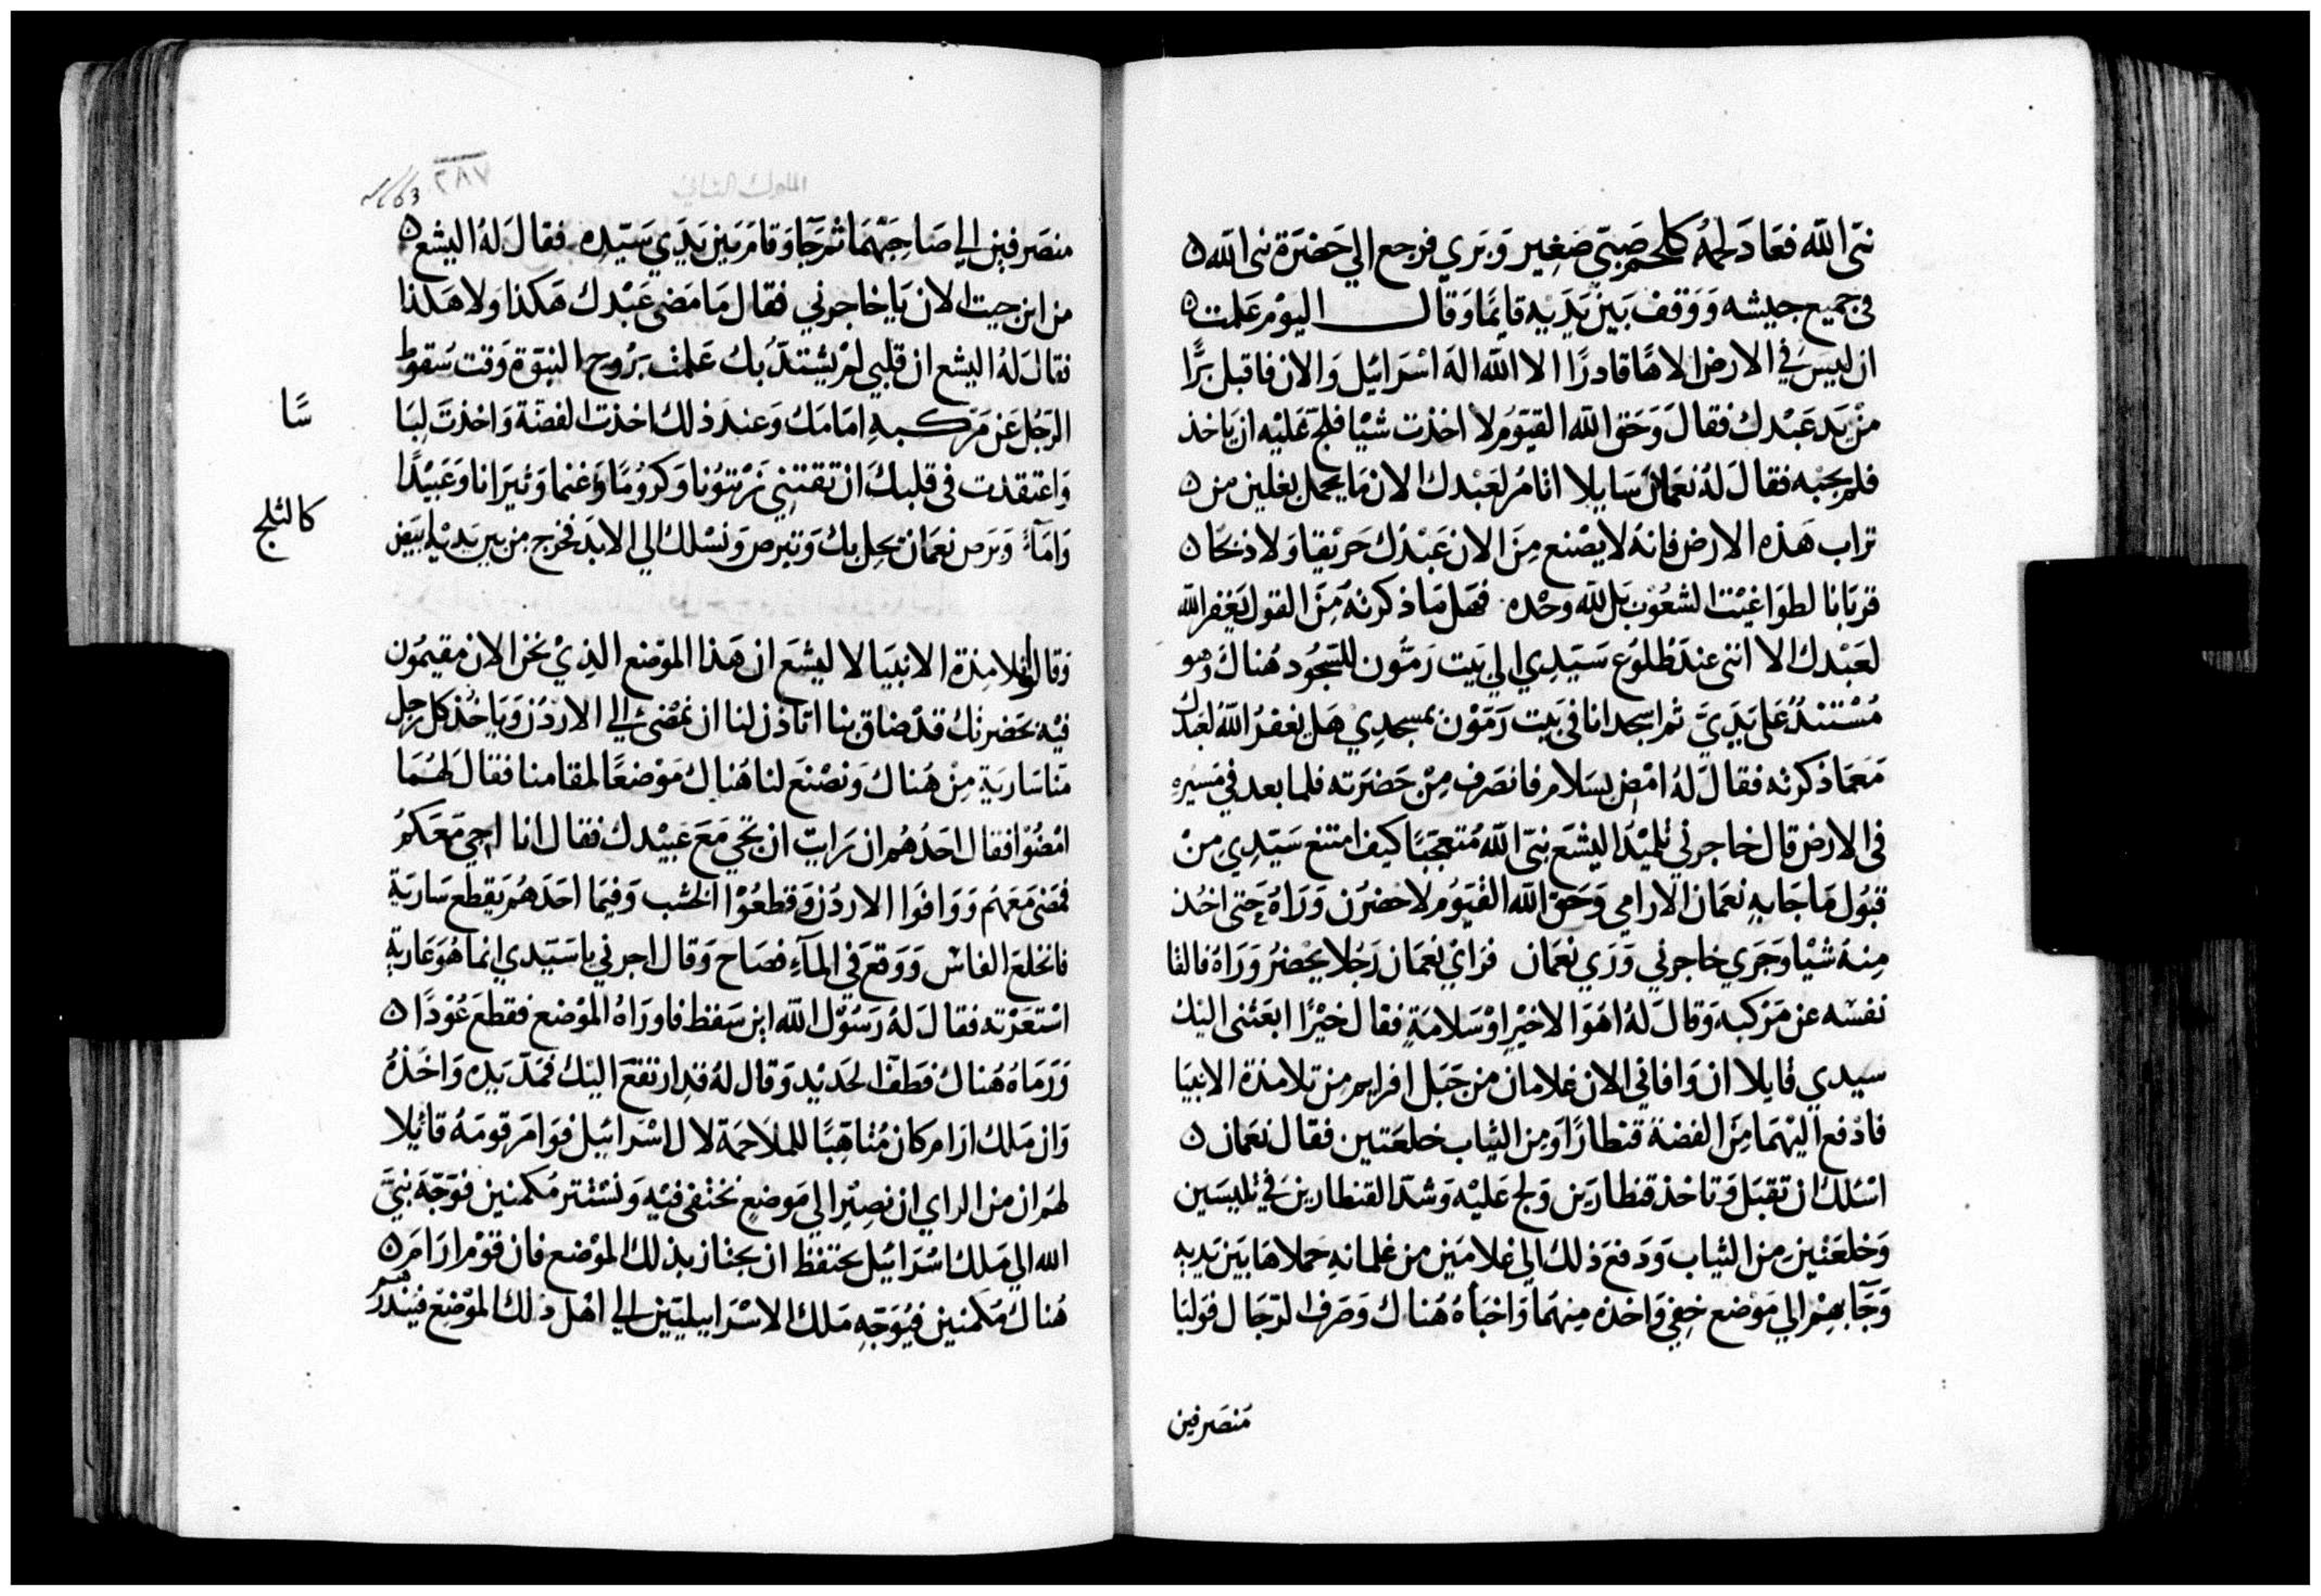 نبي الله فعاد لحمه كلحم صبي صغير وبري فرجع الي حضرة نبي الله
في جميع جيشه ووقف بين يديه قايما وقال اليوم علمت
ان ليس في الارض الاها قادرا الا الله اله اسرائيل والان فاقبل برا
من يد عبدك فقال وحق الله القيوم لا اخذت شيا فلج عليه ان ياخذ
فلم يجبه فقال له نعمان سايلا انا مر لعبدك الان ما يحمل بغلين من
تراب هذه الارض فانه لا يصنع من الان عبدك حريقا ولا ذبحا
قربانا لطواغيت الشعوب بل لله وحده فهل ما ذكرته من القول يغفر الله
لعبدك الا انني عند طلوع سيدي الي بيت رمون للسجود هناك وهو
مستند على يدي ثم اسجد انا في بيت رمون بمسجدي هل يغفر الله لعبدك
معما ذكرته فقال له امض بسلام فانصرف من حضرته فلما بعد في مسيره
في الارض قال خاجوني تلميذ اليشع نبي الله متعجبا كيف امتنع سيدي من
قبول ما جا به نعمان الارامي وحق الله القيوم لاحضرن وراه حتى اخذ
منه شيا وجري خاجوني وري نعمان فراي نعمان رجلا يحضر وراة فالقا
نفسه عن مركبه وقال له اهو الا خيرا وسلامة فقال خيرا ابعثني اليك
سيدي قايلا ان وافاني الان غلامان من جبل افرايم من تلامذة الانبيا
فادفع اليهما من الفضة قنطارا ومن الثياب خلعتين فقال نعمان
اسلك ان تقبل وتاخذ قنطارين ولج عليه وشد القنطارين في تليسين
وخلعتين من الثياب ودفع ذلك الي غلامين من غلمانه حملاها بين يديه
وجا بهم الي موضع خفي واخذه منهما واخباه هناك وصرف الرجال فوليا
منصرفين
الملوك الثاني
٢٨٧
منصرفين الي صاحبهما ثم جا وقام بين يدي سيده فقال له اليشع
من اين جيت الان يا خاجوني فقال ما مضى عبدك هكذا ولا هكذا
فقال له اليشع ان قلبي لم يشتد بك علمت بروح النبوة وقت سقوط
الرجل عن مركبه امامك وعند ذلك اخذت الفضة واخذت لبا
سا
واعتقدت في قلبك ان تقتني زيتونا وكروما وغنما وثيرانا وعبيدا
واماء وبرص نعمان يحل بك وتبرص ونسلك الي الابد فخرج من بين يديه ابيض
كالثلج
وقالوا تلامذة الانبيا لاليشع ان هذا الموضع الذي نحن الان مقيمون
فيه بحضرتك قد ضاق بنا اتاذن لنا ان نمضى الي الاردن وياخذ كل رجل
منا سارية من هناك ونصنع لنا هناك موضعا لمقامنا فقال لهما
امضوا فقال احدهم ان رايت ان تجي مع عبيدك فقال انا اجي معكم
فمضى معهم ووافوا الاردن وقطعوا الخشب وفيما احدهم يقطع سارية
فانخلع الفاس ووقع في الماء فصاح وقال اجرني يا سيدي انما هو عارية
استعرته فقال له رسول الله اين سقط فاوراه الموضع فقطع عودا
ورماه هناك فطفا الحديد وقال له قد ارتفع اليك فمد يده واخذه
وان ملك ارام كان متاهبا للملاحمة لال اسرائيل فوامر قومه قائلا
لهم ان من الراي ان نصير الي موضع نختفي فيه ونستتر مكمنين فوجه نبي
الله الي ملك اسرائيل يحتفظ ان يجتاز بذلك الموضع فان قوم ارام
هناك مكمنين فيوجه ملك الاسراييليين الي اهل ذلك الموضع فينذرهم